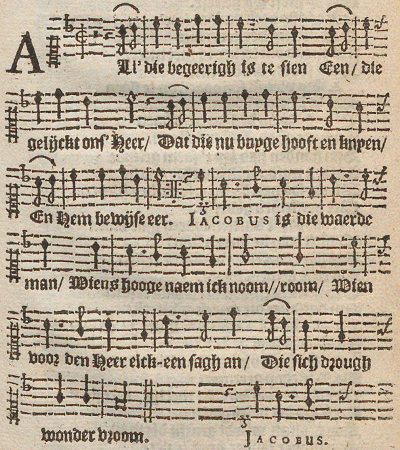 ALl' die begeerigh is te sien Een/ die
gelijckt ons' Heer/ Dat die nu buyge hooft en knyen/
En Hem bewijse eer. JACOBUS is die waerde
man/ Wiens hooge naem ick noom//room/ Wien
voor den Heer elck-een sagh an/ Die sich drough
wonder vroom. JACOBUS.